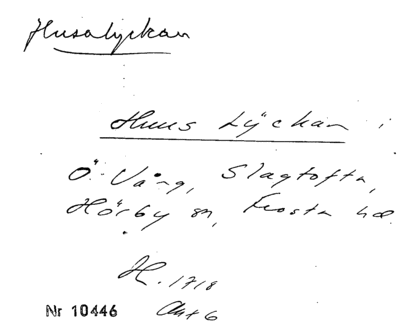 Husalyckan
Huus Lÿckan i
Ö. Vång, Slagtofta,
Hörby sn, Frosta hd.
H. 1718
Akt 6
Nr 10446